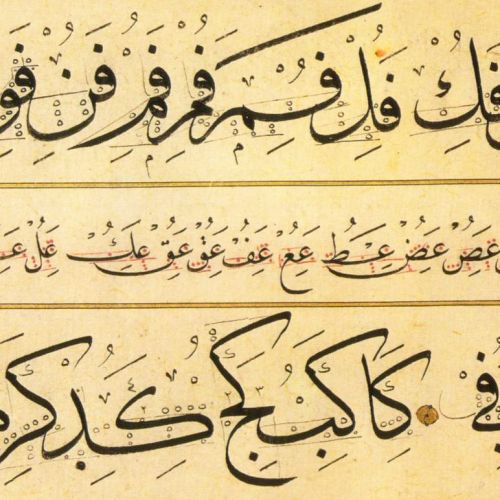 فك فل فم فم فم فن فو
عص عض عط عع عف عق عق عك عل
في كا كب كج كد كر